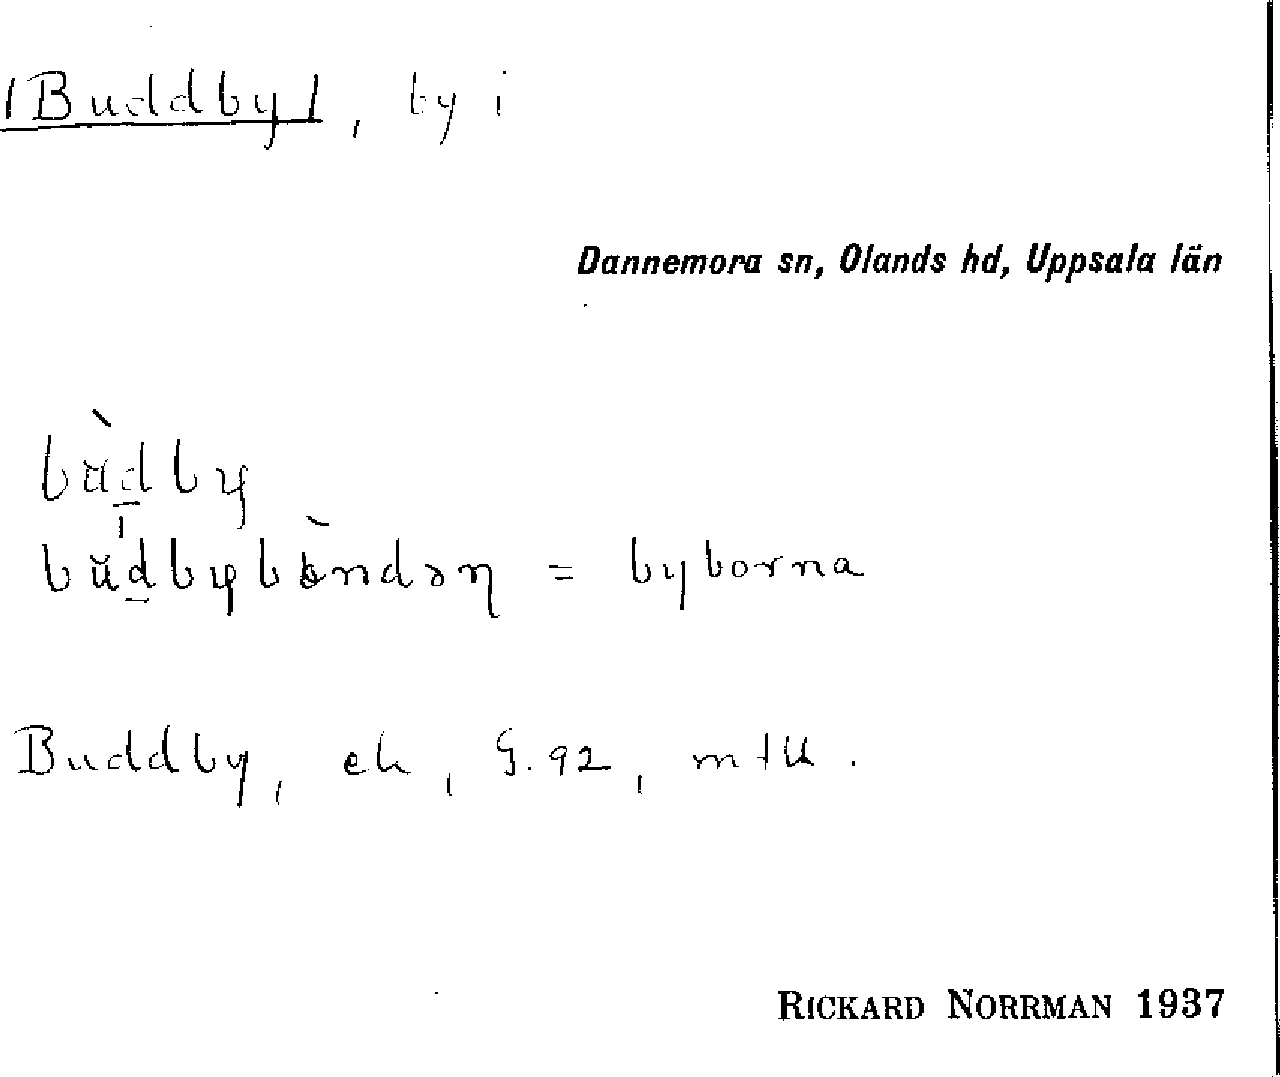 /Buddby/, by i
Dannemora sn, Olands hd, Uppsala län
bùd̲by
bŭd̲bybòndəŋ = byborna
Buddby, ek, G.92, mtlk.
RICKARD NORRMAN 1937